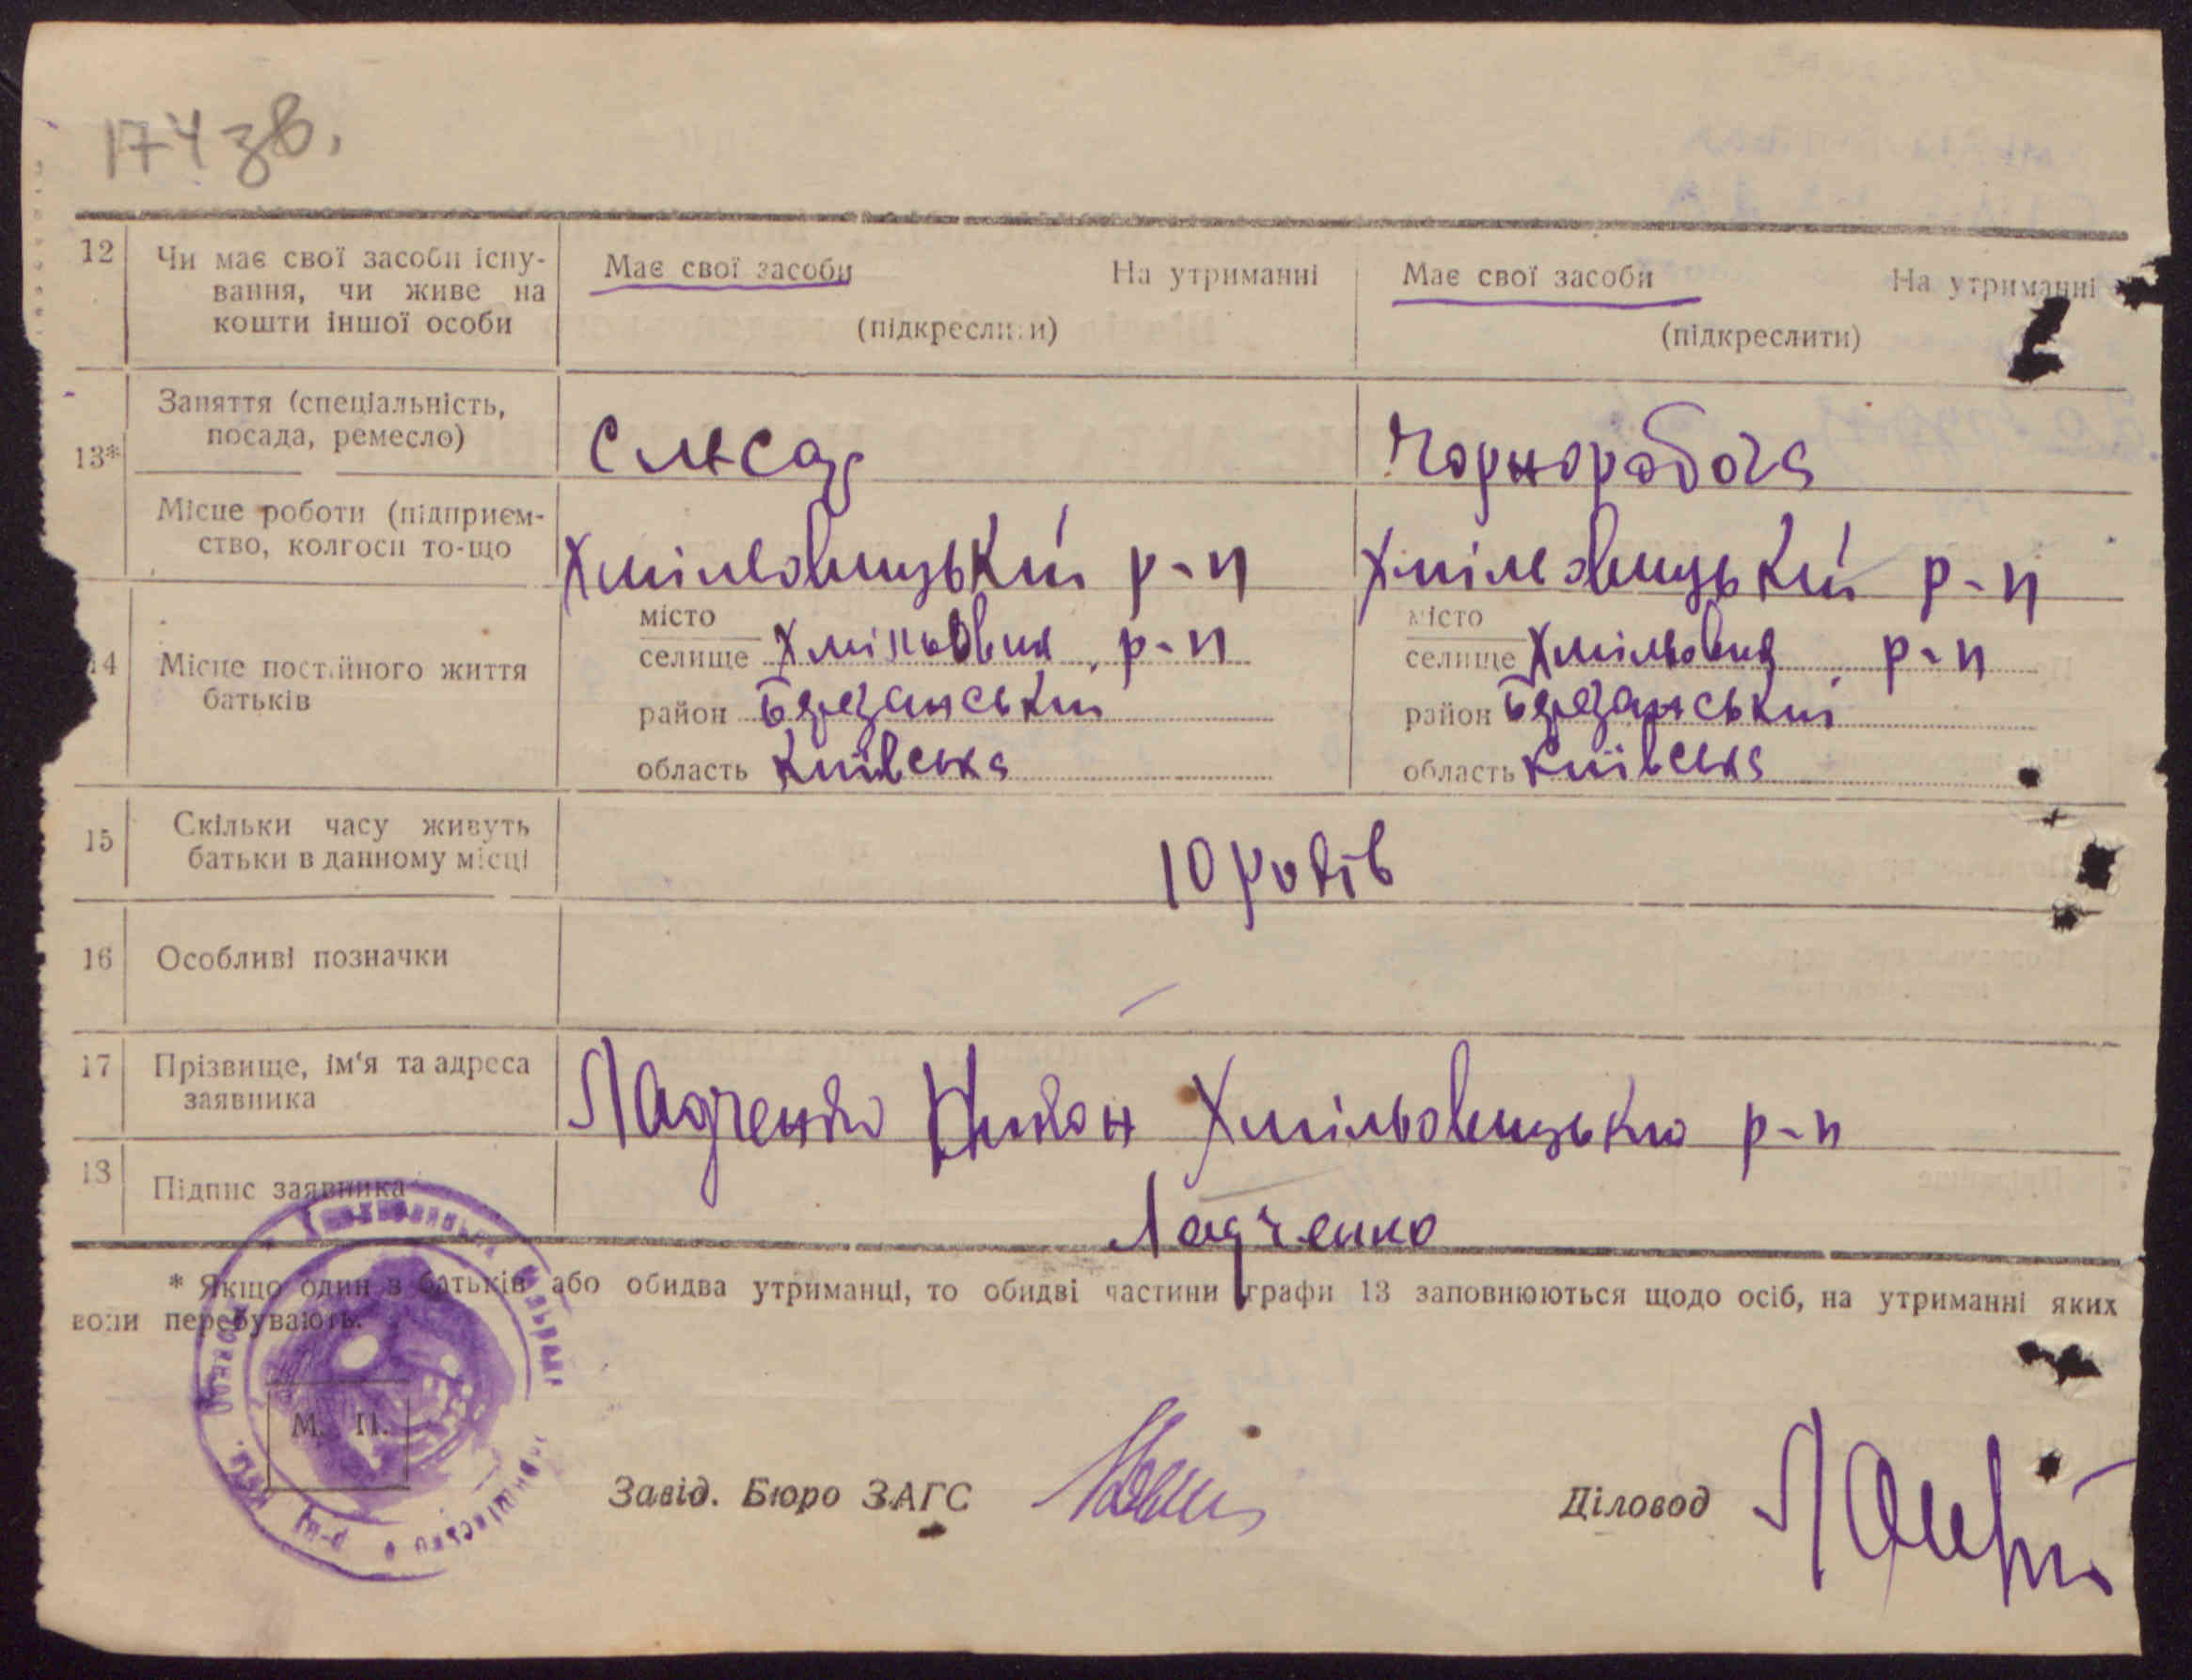 174 зв.
12 Чи має свої засоби існу-
вання, чи живе на
кошти іншої особи
Має свої засоби На утриманні
(підкреслити)
Має свої засоби На утриманні
(підкреслити)
13* Заняття (спеціальність,
посада, ремесло)
Слюсар
Чорноробоча
Місце роботи (підприєм-
ство, колгосп то-що
Хмільовицький р-п
Хмільовицький р-п
14 Місце постійного життя
батьків
місто
селище Хмільовик р-п
район Березанський
область Київська
місто
селище Хмільовик р-п
район Березанський
область Київська
15 Скільки часу живуть
батьки в данному місці
10 років
16 Особливі позначки
17 Прізвище, ім'я та адреса
заявника
Ладченко Никон Хмільовицький р-п
13 Підпис заявника
Ладченко
* Якщо один з батьків або обидва утриманці, то обидві частини графи 13 заповнюються щодо осіб, на утриманні яких
вони перебувають.
М. П.
Завід. Бюро ЗАГС
Діловод